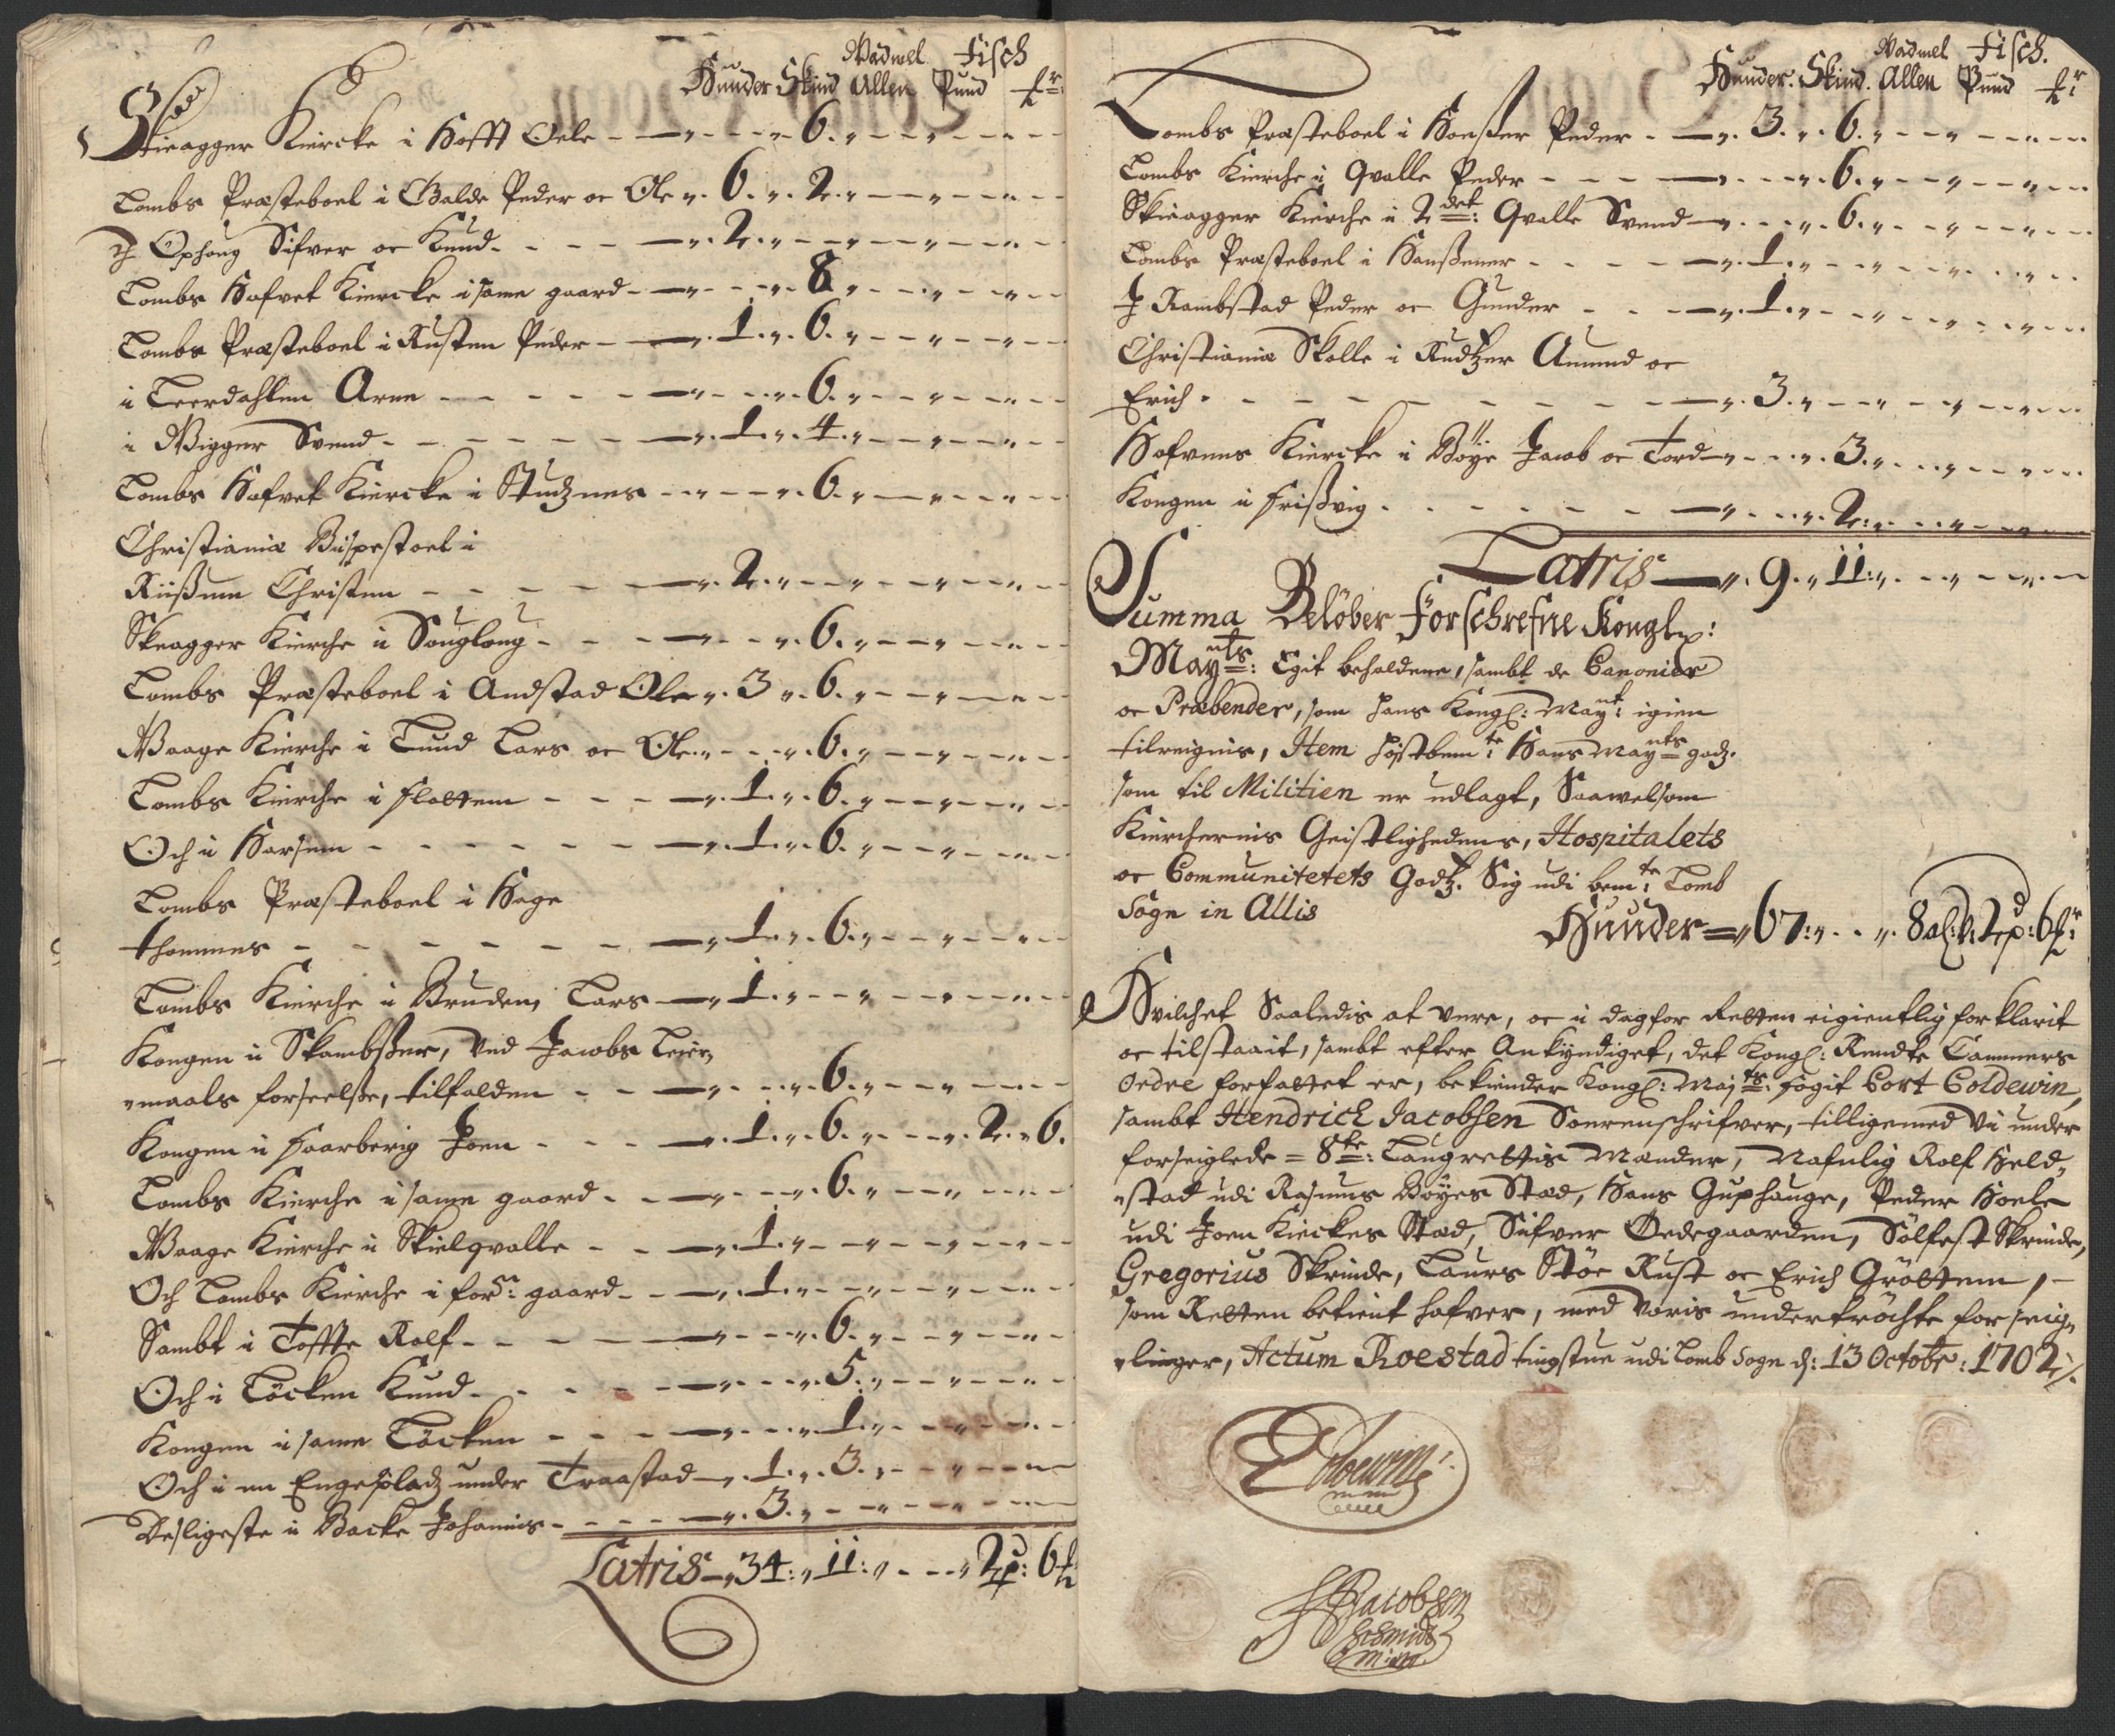 Wadmel Fisch
Hunder Skind Allen Pund fr:
Skieagger Kiercke i Hofft Oele — „ - - - „ 6. „ - - „ - - „ - -
Lombs Præsteboel i Galde Peder oc Ole „. 6. „. 2. „ — „ - „ - -
Ophoug Sifver oc Knud - - - — „. 2. „ - - „ - - „ - - „ -
Lombs Hofvet Kiercke i same gaard — „ - - „. 8 „ - - „ - „ - -
Lombs Præsteboel i Rusten Peder — „. 1. „. 6. „ - - „ - - „ -
i Leerdahlen Arne - - - - — „ - - „. 6. „ - - „ - - „ -
i Wigger Svend - - - - — „. 1. „. 4. „ - - „ - - „ -
Lombs Hofvet Kiercke i Studznes - - „ - - „. 6. „ — „ - - „ -
Christianiæ Bispestoel i
Riißum Christen - - - - — „. 2. „ - - „ - - „ - - „ -
Skeagger Kierche i Sougloug - - - — „ - - „. 6. „ - - „ - - „ -
Lombs Præsteboel i Andstad Ole „. 3 „. 6. „ - - „ - - „ -
Waage Kierche i Lund Lars oc Ole „ - - „. 6. „ - - „ - - „ -
Lombs Kierche i Flottem - - - — „. 1. „. 6. „ - - „ - - „ -
Och i Harsem - - - - - — „. 1. „. 6. „ - - „ - - „ -
Lombs Præsteboel i Hage
Thommes - - - - - — „. 1. „. 6. „ - - „ - - „ -
Lombs Kierche i Bruden, Lars — „. 1. „ - - „ - - „ - - „ -
Kongen i Skambßer, ved Jacobs Leier„
„maals forseelße, tilfalden - - — „ - - „. 6. „ - - „ - - -
Kongen i Haarberig Joen - - - — „. 1. „. 6. „ - - „. 2. „ 6.
Lombs Kierche i same gaard - - — „ - - „. 6. „ - - „ - - -
Waage Kierche i Skielqvalle - - — „. 1. „ - - „ - - „ - - „ -
Och Lombs Kierche i forne: gaard - - — „. 1. „ - - „ - - „ - -
Sambt i Toffte Rolf - - - — „ - - „. 6. „ - - „ - - „ -
Och i Löcken Knud - - - - — „ - - „. 5. „ - - „ - - „ -
Kongen i same Löcken - - - — „ - - „. 1. „ - - „ - - „ -
Och i en Engeplads under Traastad — „. 1. „. 3. „ - - „ - - -
Desligeste i Backe Johannis - - - - — „. 3. „ - - „ - - „ - -
Latris — „ 34: „ 11: „ - - - „ 2 p: 6 f
Wadmel Fisch.
Hunder. Skind. Allen Pund fr:
Lombs Præsteboel i Hoeßer Peder - — „. 3. „. 6. „ - - „ - - „ - -
Lombs Kierche i Qvalle Peder - - - — „ - - „. 6. „ - - „ - - „ -
Skieagger Kierche i 2det: Qvalle Svend — „ - - „. 6. „ - - „ - - „ -
Lombs Præsteboel i Haußener - - - — „. 1. „ - - „ - - „ - - „ -
J Rambstad Peder oc Gunder - - — „. 1. „ - - „ - - „ - - „ -
Christianiæ Skolle i Rudtzer Amund oc
Erich - - - - - - - — „. 3. „ - - „ - - „ - - „ -
Hofvens Kiercke i Böÿe Jacob oc Tord — „ - - „. 3. „ - - „ - - „ -
Kongen i Frißvig - - - - - — „ - - „. 2. „ - - „ - - „ -
Latris — „. 9. „ 11: „ - - „ - - „ -
Summa Belöber Forschrefne Kongl:
Mayts: Egit beholdene, sambt de Canonier
oc Præbender, som Hans Kongl: Mayt: igien
tilreignis, Item Höjstbemte: Hans Mayts godz.
som til Militien er udlagt, Saawelsom
Kierchernis Geistlighedens, Hospitalets
oc Communitetets Godtz. Sig udi bemte: Lomb
Sogn in Allis Hunder — „ 67: „ - - „. 8 al: 2 p: 6 fr:
Hvilchet Saaledis at være, oc i dag for Retten eigientlig forklarit
oc tilstaait, sambt efter Ankÿndiget, det Kongl: Rendte Cammers
Ordre forfattet er, bekiender Kongl: Majts: fogit Cort Coldewin,
sambt Hendrich Jacobsen Sorenschrifver, tilligemed vi under
forseiglede = 8te: Laugrettis Mænder, Nafnlig Rolf Held„
„stad udi Rasmus Böÿes Stæd, Hans Gusshauge, Peder Hoele
udi Joen Kieckes Stæd, Sifver Ödegaarden, Sölfest Skrinde,
Gregorius Skrinde, Laurs Stör Rust oc Erich Gröttem, -
som Retten betient hafver, med voris undertröchte forseig„
„linger, Actum Roestad tingstue udi Lomb Sogn d: 13 Octobr: 1702 /.
Coldewin
HJacobsen